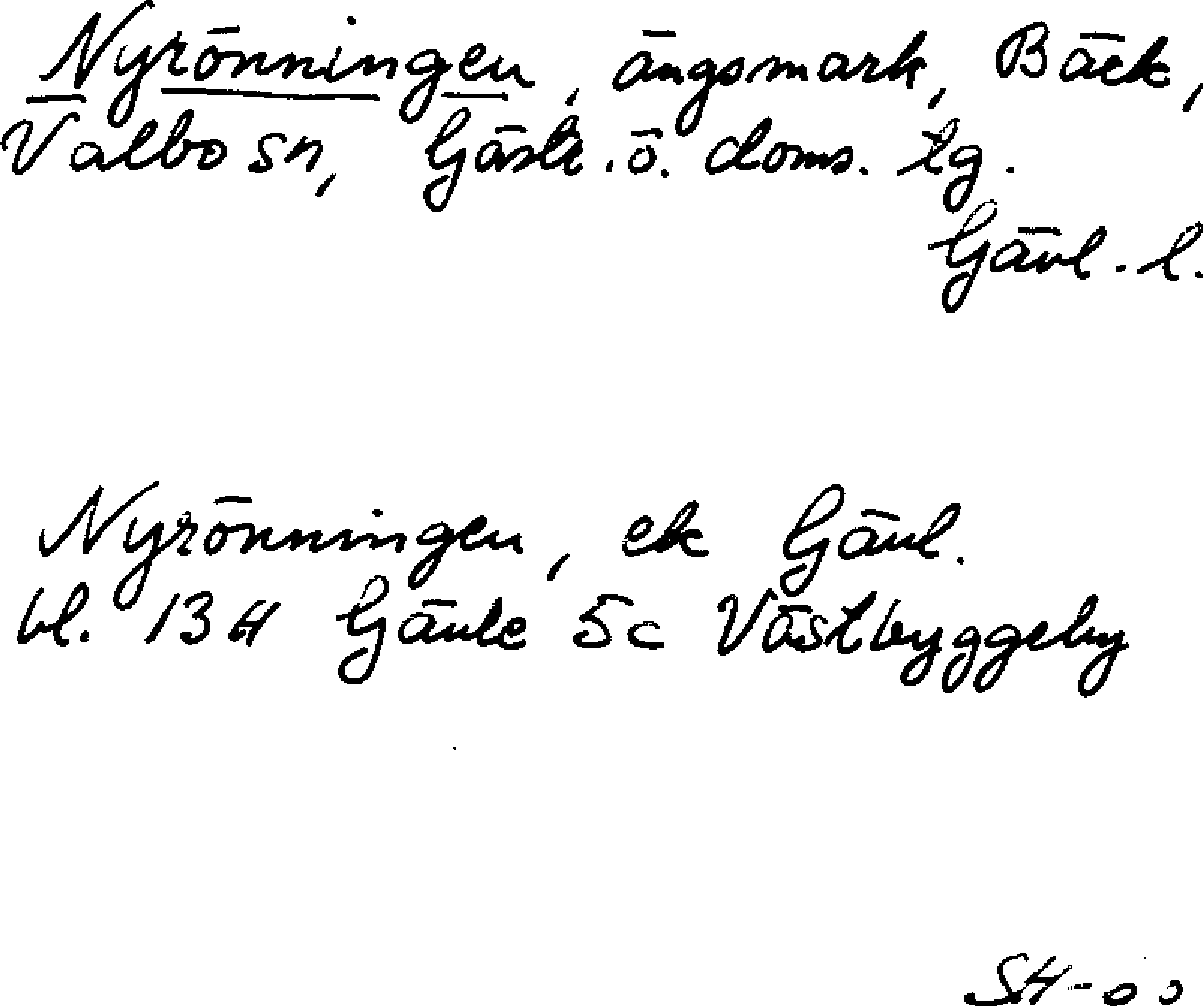 Nyrönningen, ängsmark, Bäck,
Valbo sn, Gästr. ö. doms. tg.
Gävl. l.
Nyrönningen, ek Gävl.
bl. 13H Gävle 5c Västbyggeby
SH-00